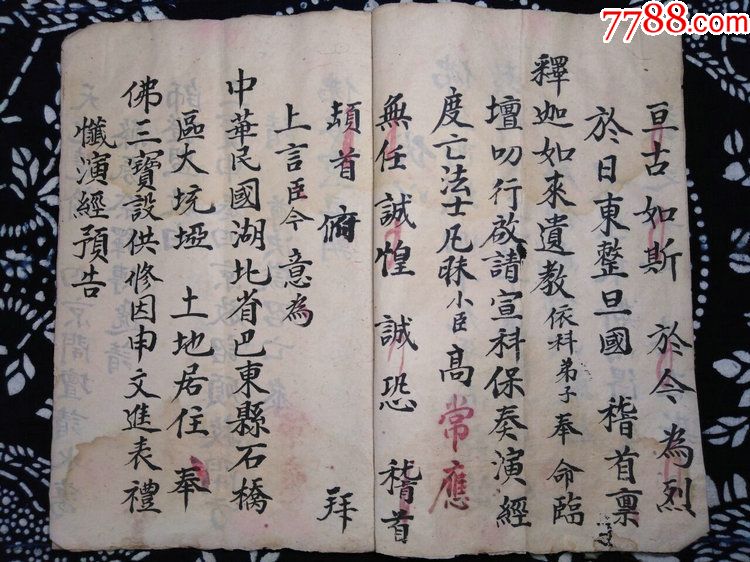 7788.com
亘古如斯 於今為烈
於日東整旦國 稽首稟
釋迦如來遺教 依科弟子奉命臨
壇叨行啟請宣科保奏演經
度亡法士凡昧小臣高常應
無任誠惶 誠恐 稽首
頓首俯 拜
上言臣今 意為
中華民國湖北省巴東縣石橋
區大坑埡 土地居住 奉
佛三寶設供修因申文進表禮
懺演經預告